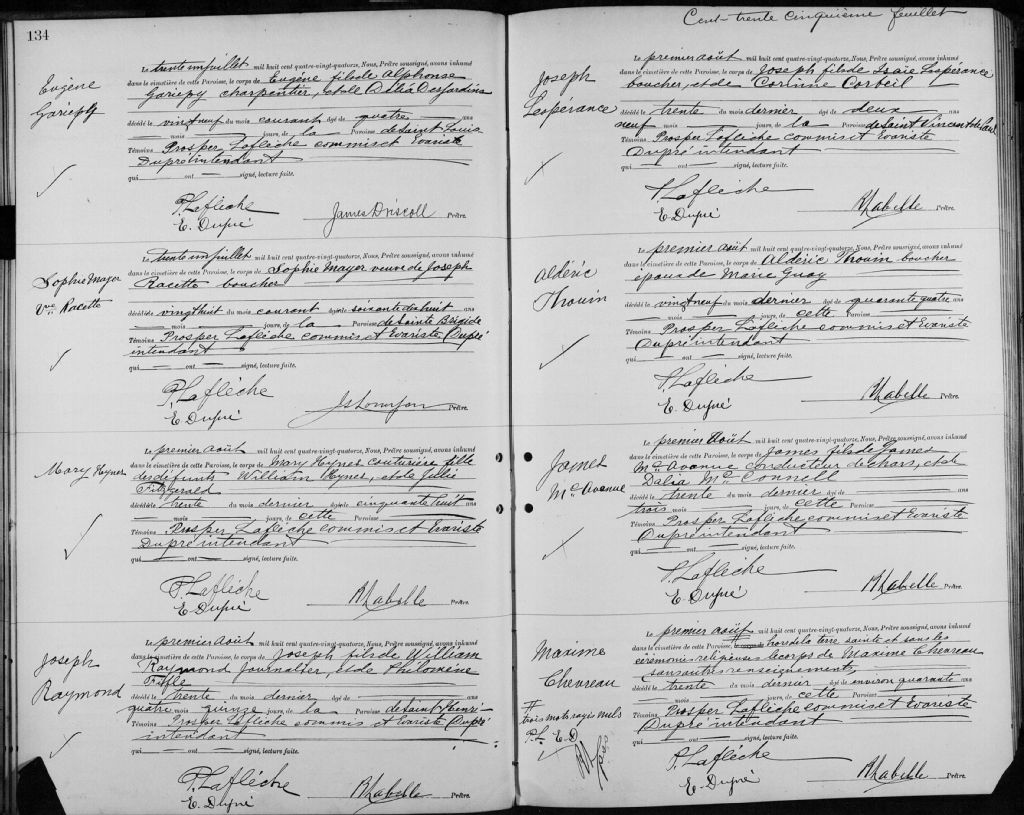 134
Eugène
Gariepy
Le trente un juillet mil huit cent quatre-vingt-quatorze, Nous, Prêtre soussigné, avons inhumé
dans le cimetière de cette Paroisse, le corps de Eugène fils de Alphonse
Gariepy charpentier, et de Délia Desjardins
décédé le vingt neuf du mois courant âgé de quatre ans
mois jours, de la Paroisse de Saint Louis
Témoins Prosper Lafléche commis et Evariste
Dupré intendant
qui ont signé, lecture faite.
P. Lafléche
E. Dupré
James Driscoll Prêtre.
Sophie Mayer
Vve Racette
Le trente un juillet mil huit cent quatre-vingt-quatorze, Nous, Prêtre soussigné, avons inhumé
dans le cimetière de cette Paroisse, le corps de Sophie Mayer veuve de Joseph
Racette boucher
décédée le vingt huit du mois courant âgée de soixante dix huit ans
mois jours, de la Paroisse de Sainte Brigide
Témoins Prosper Lafléche commis et Evariste Dupré
intendant
qui ont signé, lecture faite.
P. Lafléche
E. Dupré
Prêtre.
Mary Hynes
Le premier août mil huit cent quatre-vingt-quatorze, Nous, Prêtre soussigné, avons inhumé
dans le cimetière de cette Paroisse, le corps de Mary Hynes couturière fille
des défunts William Hynes, et de Julie
Fitzgerald
décédée le trente du mois dernier âgée de cinquante huit ans
mois jours, de cette Paroisse
Témoins Prosper Lafléche commis et Evariste
Dupré intendant
qui ont signé, lecture faite.
P. Lafléche
E. Dupré
R Labelle Prêtre.
Joseph
Raymond
Le premier août mil huit cent quatre-vingt-quatorze, Nous, Prêtre soussigné, avons inhumé
dans le cimetière de cette Paroisse, le corps de Joseph fils de William
Raymond journalier, et de Philomène
décédé le trente du mois dernier âgé de ans
quatre mois quinze jours, de la Paroisse de Saint Henri
Témoins Prosper Lafléche commis et Evariste Dupré
intendant
qui ont signé, lecture faite.
P. Lafléche
E. Dupré
R Labelle Prêtre.
Cent-trente cinquième feuillet
Joseph
Lespérance
Le premier août mil huit cent quatre-vingt-quatorze, Nous, Prêtre soussigné, avons inhumé
dans le cimetière de cette Paroisse, le corps de Joseph fils de Isaïe Lespérance
boucher, et de Corinne Corbeil
décédé le trente du mois dernier âgé de deux ans
neuf mois jours, de la Paroisse de Saint Vincent de Paul
Témoins Prosper Lafléche commis et Evariste
Dupré intendant
qui ont signé, lecture faite.
P. Lafléche
E. Dupré
R Labelle Prêtre.
Aldéric
Thouin
Le premier août mil huit cent quatre-vingt-quatorze, Nous, Prêtre soussigné, avons inhumé
dans le cimetière de cette Paroisse, le corps de Aldéric Thouin boucher
époux de Marie Guay
décédé le vingt neuf du mois dernier âgé de quarante quatre ans
mois jours, de cette Paroisse
Témoins Prosper Lafléche commis et Evariste
Dupré intendant
qui ont signé, lecture faite.
P. Lafléche
E. Dupré
R Labelle Prêtre.
James
Mc Avanue
Le premier Août mil huit cent quatre-vingt-quatorze, Nous, Prêtre soussigné, avons inhumé
dans le cimetière de cette Paroisse, le corps de James fils de James
Mc Avanue conducteur de chars, et de
Dalia Mc Connell
décédé le trente du mois dernier âgé de ans
trois mois jours, de cette Paroisse
Témoins Prosper Lafléche commis et Evariste
Dupré intendant
qui ont signé, lecture faite.
P. Lafléche
E. Dupré
R Labelle Prêtre.
Maxime
Chevreau
trois mots rayés nuls
P.L. E.D
Le premier août mil huit cent quatre-vingt-quatorze, Nous, Prêtre soussigné, avons inhumé
dans le cimetière de cette Paroisse, le corps de hors de la terre sainte et sans les
cérémonies religieuses le corps de Maxime Chevreau
sans autres renseignements
décédé le trente du mois dernier âgé de environ quarante ans
mois jours, de cette Paroisse
Témoins Prosper Lafléche commis et Evariste
Dupré intendant
qui ont signé, lecture faite.
P. Lafléche
E. Dupré
R Labelle Prêtre.